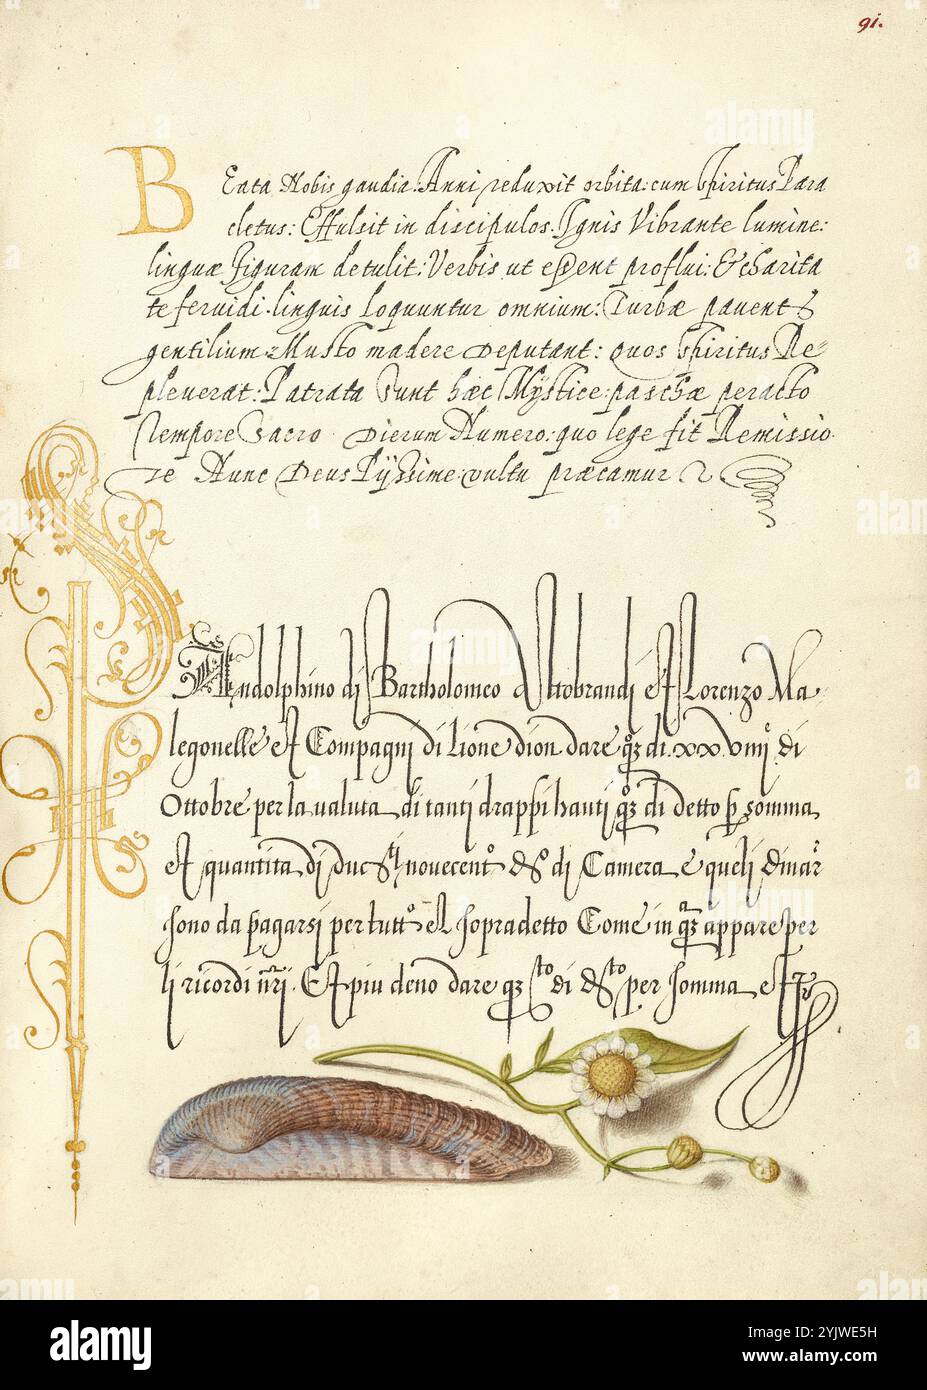 91.
BEata Nobis gaudia. Anni reduxit orbita: cum Spiritus Para
cletus: Effulsit in discipulos. Ignis Vibrante lumine:
linguæ figuram detulit: Verbis ut essent proflui: & charita
te fervidi. linguis loquuntur omnium: Turbæ pavent &
gentilium Musto madere Deputant: quos Spiritus Re=
pleverat: Patrata sunt hæc Mÿstice: paschæ peracto
Tempore Sacro Dierum Numero: quo lege fit Remissio.
Te Nunc Deus Pijssime vultu præcamur
Andolphino di Bartholomeo Attobrandi et Lorenzo Ma
legonelle et Compagni di Lione dion dare qz di .xx.viiij. di
Ottobre per la valuta di tanti drappi hauti qz di detto p somma
et quantita di duc novecento di Camera e queli dinar
sono da pagarsi per tutto el sopradetto Come in qz appare per
li ricordi nri. Et piu deno dare qz di per somma et
alamy
Image ID: 2YJWE5H
www.alamy.com